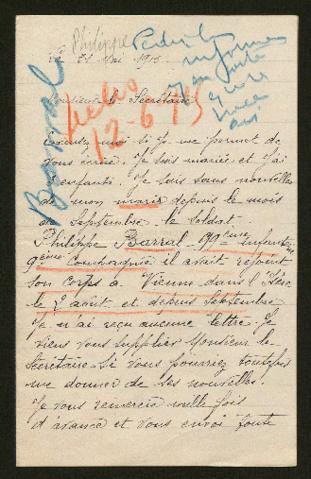 Philippe
Le 21 Mai 1915.
Barral
12-6-15
Monsieur le Secrétaire
Excusez moi si je me permet de
vous écrire. Je suis mariée et j'ai
enfants. Je suis sans nouvelles
de mon marie depuis le mois
de Septembre. le soldat.
Philippe Barral 99ème infanterie
9ème Compagnie il avait rejoint
son corps a Vienne dans l'Isère
le 2 août et depuis Septembre
Je n'ai reçu aucune lettre. Je
viens vous supplier Monsieur le
Secrétaire si vous pourriez
me donner de ses nouvelles.
Je vous remercie mille fois
d'avance et vous envoi toute